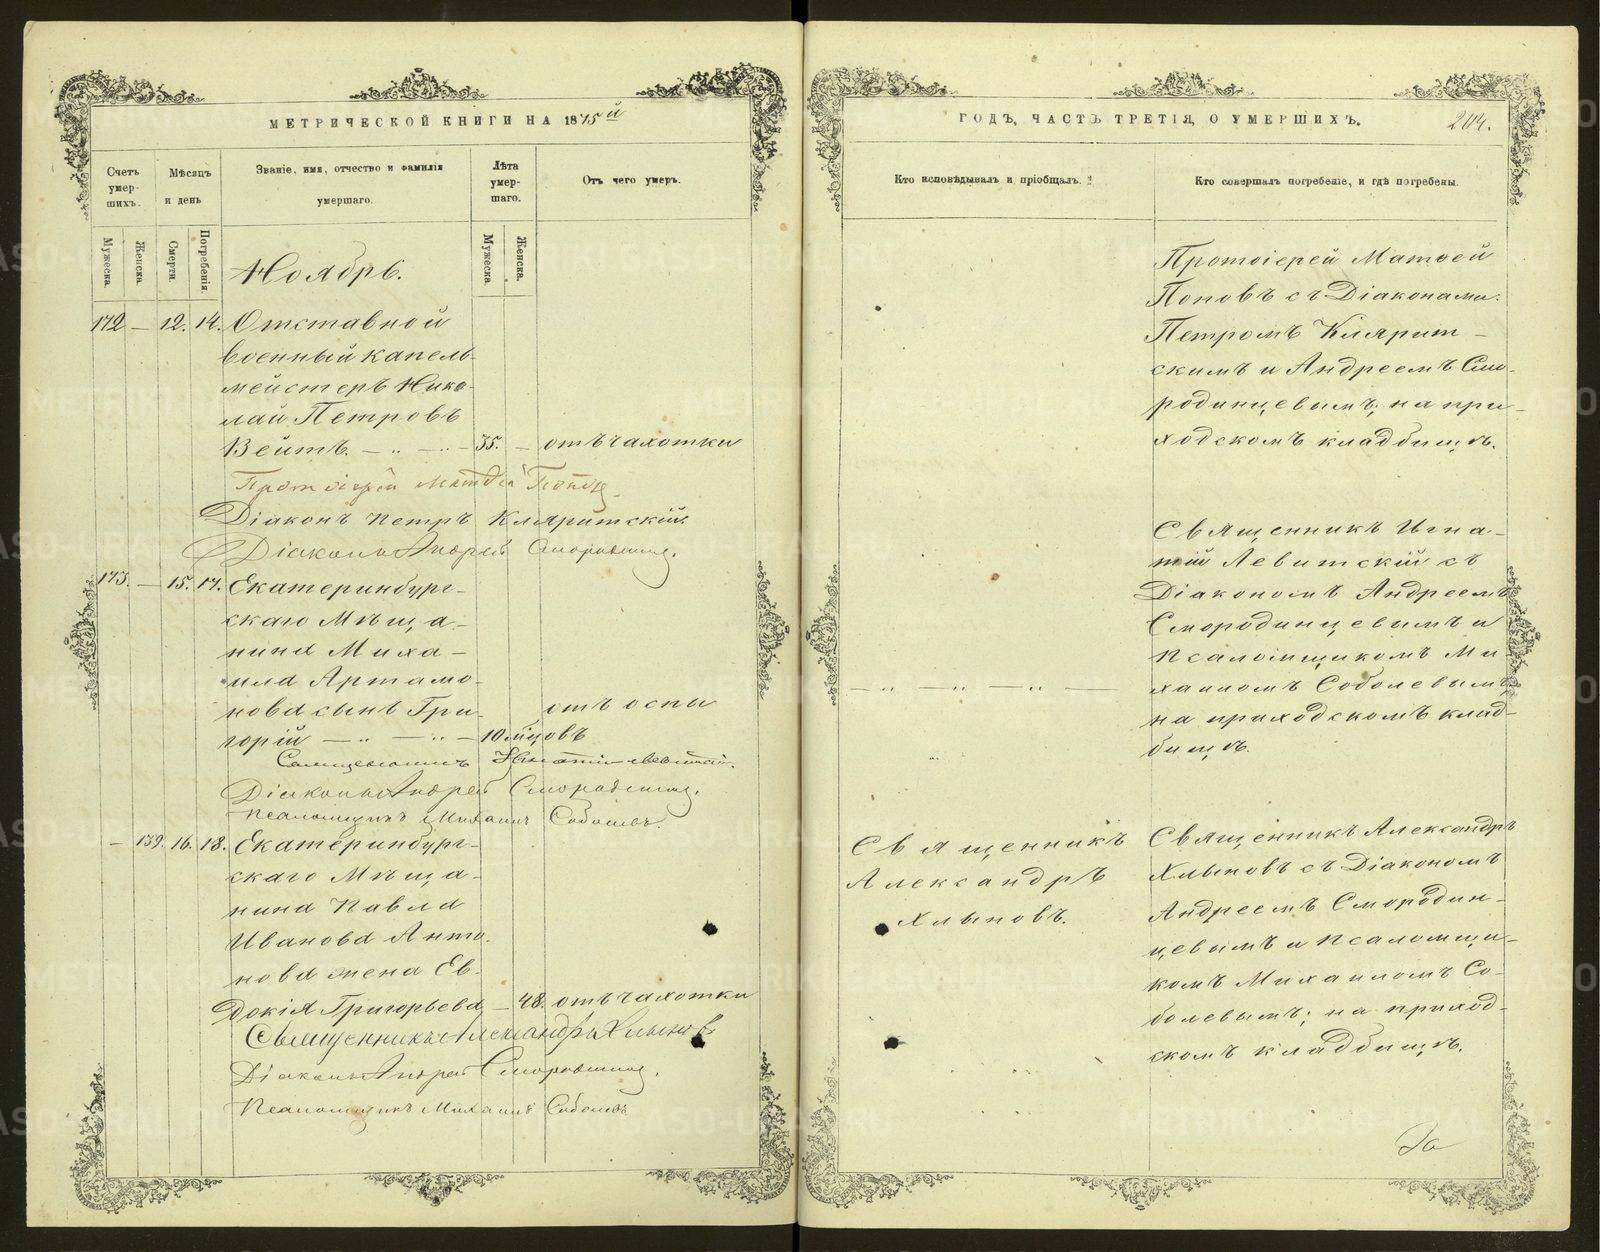 МЕТРИЧЕСКОЙ КНИГИ НА 1875й
Счетъ умер-шихъ.
Мѣсяцъ и день
Званіе, имя, отчество и фамилія умершаго.
Лѣта умер-шаго.
Отъ чего умеръ.
Мужеска.
Женска.
Смерти.
Погребенія.
Мужеска.
Женска.
Ноябрь.
172 — 12. 14. Отставной
военный капель-
мейстеръ Нико-
лай Петровъ
Вейтъ. — 35. — отъ чахотки
Протоіерей Матвей Поповъ.
Діаконъ Петръ Кляритскій.
Діаконъ Андрей Смородинцев.
173. — 15. 17. Екатеринбург-
скаго Мѣща-
нина Миха-
ила Артамо-
нова сынъ Гри- отъ оспы
горій — 10 м҃цовъ
Священникъ Игнатій Левитскій.
Діаконъ Андрей Смородинцев.
Псаломщикъ Михаилъ Соболевъ.
— 139. 16. 18. Екатеринбург-
скаго Мѣща-
нина Павла
Иванова Анто-
нова жена Ев-
докія Григорьева — 48. отъ чахотки
Священникъ Александръ Хлыновъ
Діаконъ Андрей Смородинцев.
Псаломщикъ Михаилъ Соболевъ
ГОДЪ, ЧАСТЬ ТРЕТІЯ, О УМЕРШИХЪ.
204.
Кто исповѣдывалъ и пріобщалъ.
Кто совершалъ погребеніе, и гдѣ погребены.
Протоіерей Матвей
Поповъ съ Діаконами:
Петромъ Кляритс-
скимъ и Андреемъ Смо-
родинцевымъ; на при-
ходскомъ кладбищѣ.
Священникъ Игна-
тій Левитскій съ
Діакономъ Андреемъ
Смородинцевымъ и
Псаломщикомъ Ми-
хаиломъ Соболевымъ,
на приходскомъ клад-
бищѣ.
Священникъ
Александръ
Хлыновъ.
Священникъ Александръ
Хлыновъ съ Діакономъ
Андреемъ Смородин-
цевымъ и Псаломщи-
комъ Михаиломъ Со-
болевымъ; на приход-
скомъ кладбищѣ.
За
METRIKI.GASO-URAL.RU